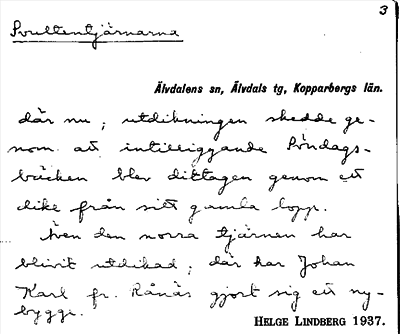 3
Svultentjärnarna
Älvdalens sn, Älvdals tg, Kopparbergs län.
där nu; utdikningen skedde ge-
nom att intilliggande Söndags-
bäcken blev dittagen genom ett
dike från sitt gamla lopp.
Även den norra tjärnen har
blivit utdikad; där har Johan
Karl fr. Rånäs gjort sig ett ny-
bygge.
HELGE LINDBERG 1937.